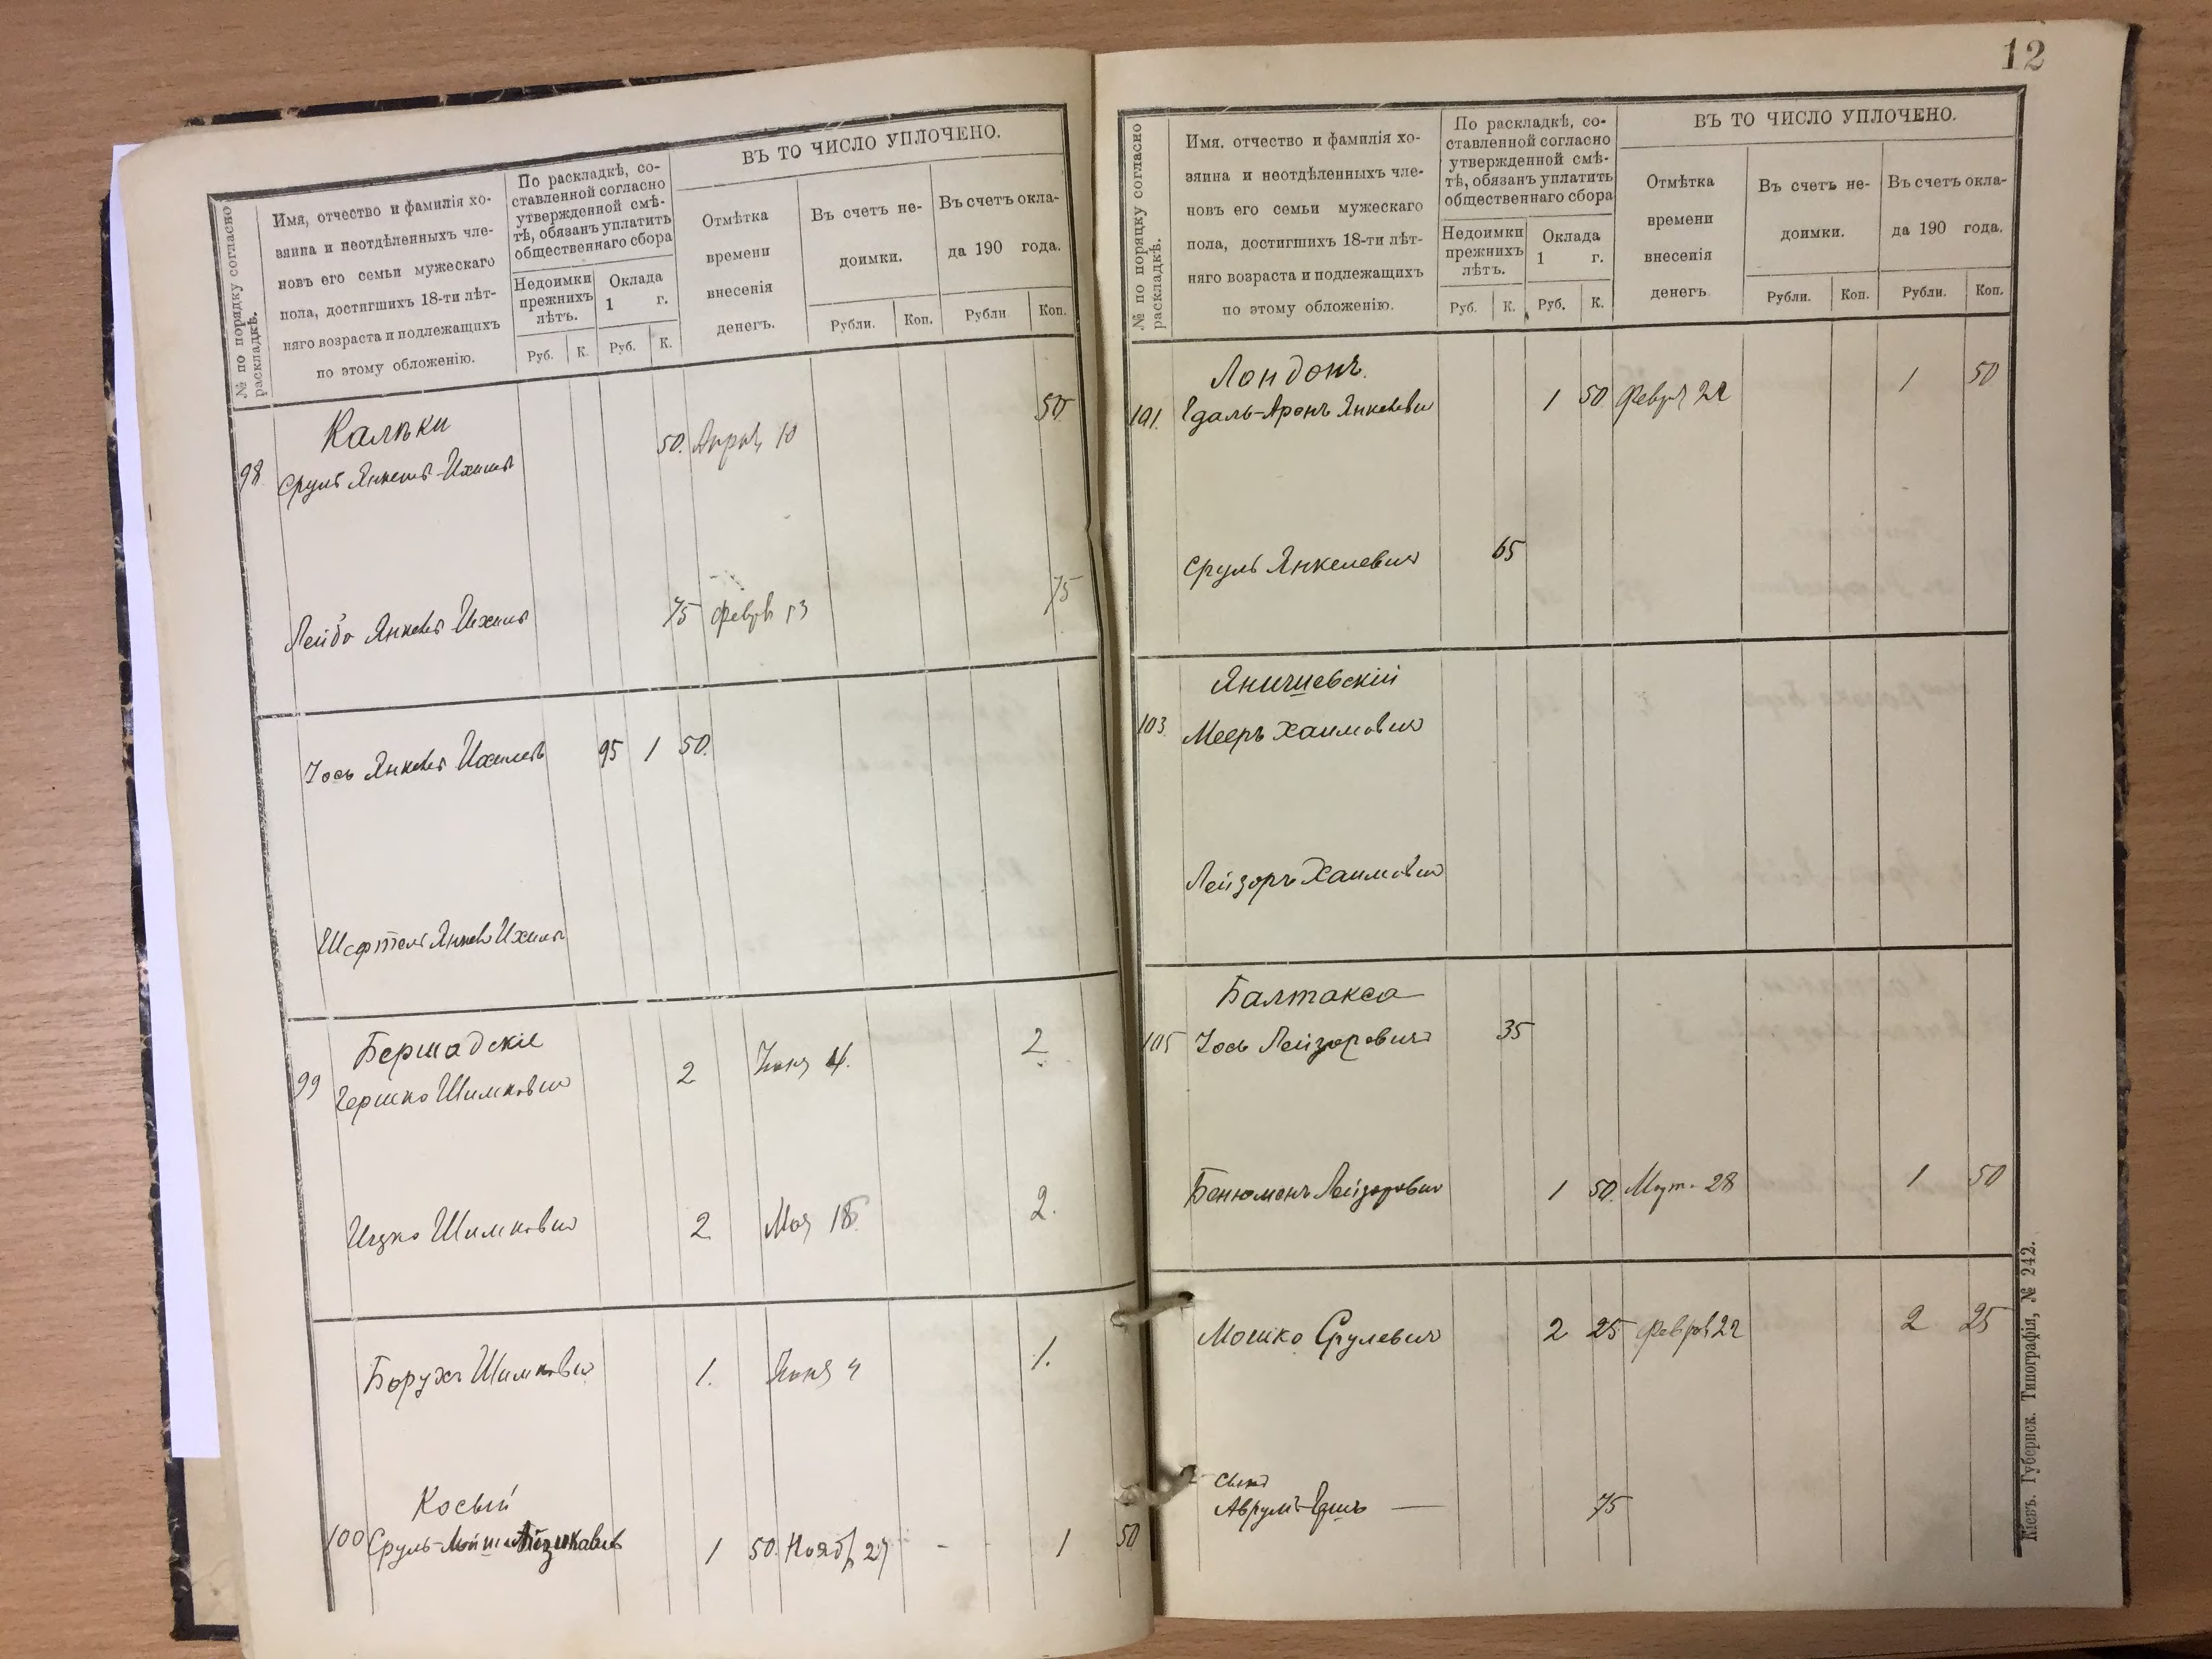 № по порядку согласно раскладкѣ.
Имя, отчество и фамилія хо-
зяина и неотдѣленныхъ чле-
новъ его семьи мужескаго
пола, достигшихъ 18-ти лѣт-
няго возраста и подлежащихъ
по этому обложенію.
По раскладкѣ, со-
ставленной согласно
утвержденной смѣ-
тѣ, обязанъ уплатить
общественнаго сбора
Недоимки
прежнихъ
лѣтъ.
Оклада
1 г.
Руб. К. Руб. К.
ВЪ ТО ЧИСЛО УПЛОЧЕНО.
Отмѣтка
времени
внесенія
денегъ.
Въ счетъ не-
доимки.
Въ счетъ окла-
да 190 года.
Рубли. Коп. Рубли Коп.
Калѣки
98 Сруль Янкель-Ихиль 50. Апрѣ 10 50
Лейба Янкель Ихиль 75 Февр 13 75
Іось Янкель Ихилевъ 95 1 50.
Шефтель Янкель Ихиль
Бершадскіе
99 Гершко Шимкович 2 Іюня 4. 2
Ицко Шимкович 2 Мая 18 2.
Борухъ Шимкович 1. Іюня 4 1.
Косый
100 Сруль-Мойше 1 50. Нояб 27 - 1 50
12
№ по порядку согласно раскладкѣ.
Имя, отчество и фамилія хо-
зяина и неотдѣленныхъ чле-
новъ его семьи мужескаго
пола, достигшихъ 18-ти лѣт-
няго возраста и подлежащихъ
по этому обложенію.
По раскладкѣ, со-
ставленной согласно
утвержденной смѣ-
тѣ, обязанъ уплатить
общественнаго сбора
Недоимки
прежнихъ
лѣтъ.
Оклада
1 г.
Руб. К. Руб. К.
ВЪ ТО ЧИСЛО УПЛОЧЕНО.
Отмѣтка
времени
внесенія
денегъ.
Въ счетъ не-
доимки.
Въ счетъ окла-
да 190 года.
Рубли. Коп. Рубли. Коп.
Лондонъ.
101. Удаль-Аронъ Янкелевич 1 50 Февр 22 1 50
Сруль Янкелевич 65
Яничшевскій
103. Мееръ Хаимович
Лейзоръ Хаимович
Балтакса
105 Іось Лейзорович 35
Бенюменъ Лейзорович 1 50. 28 1 50
Мошко Срулевич 2 25 Февр 22 2 25
сынъ
Аврумъ — 75
Кіевъ. Губернск. Типографія, № 242.